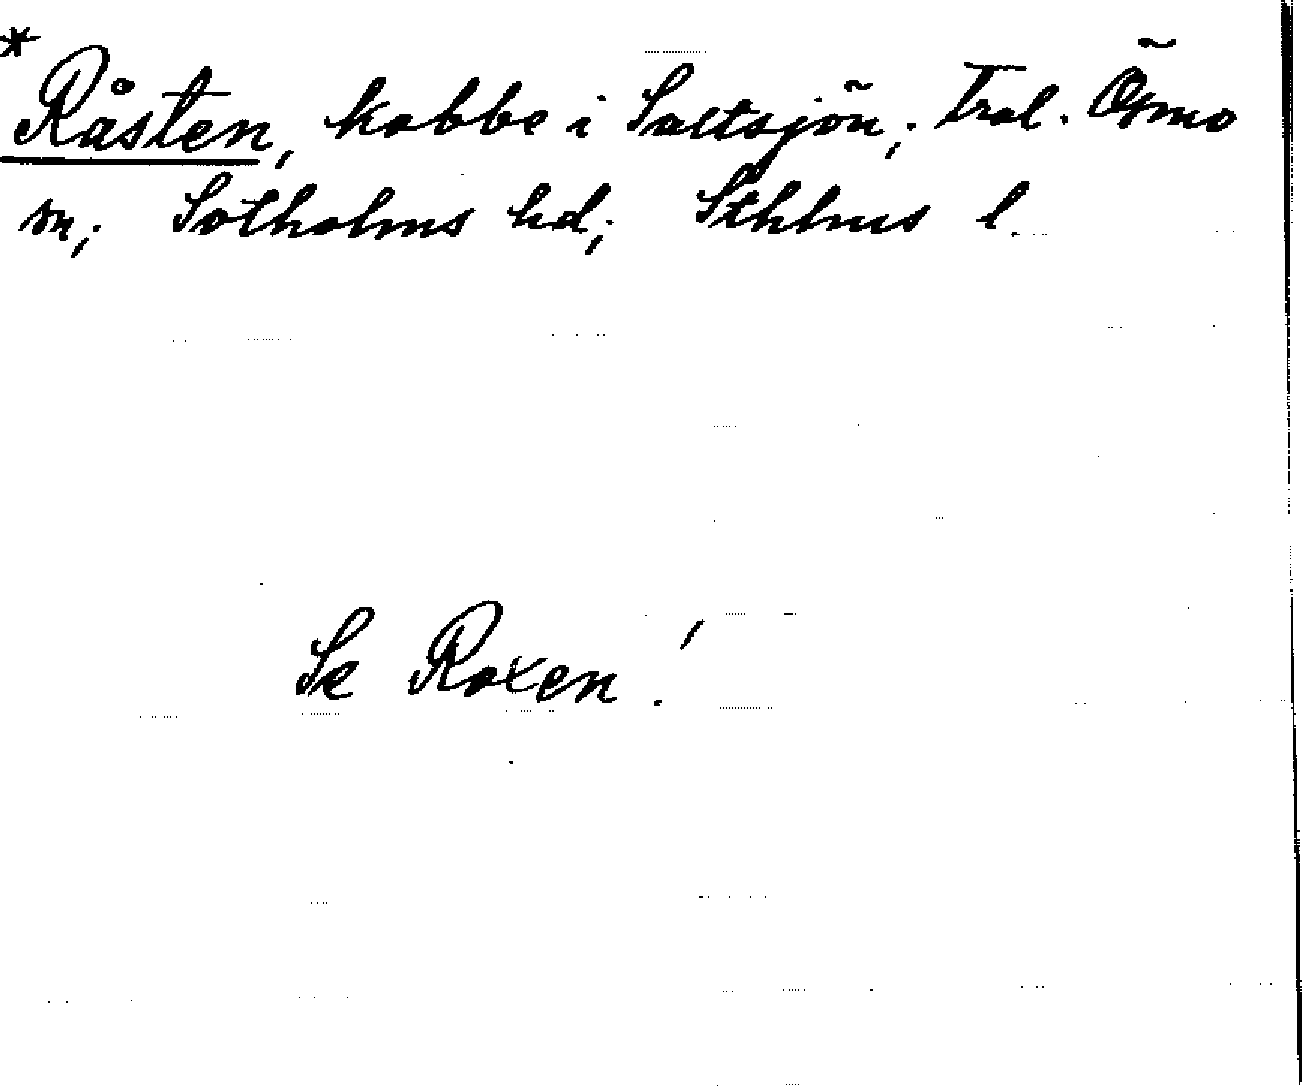 *
Råsten, kobbe i Saltsjön; Tral. Ösmo
sn; Sotholms hd; Sthlms l.
Se Roxen!